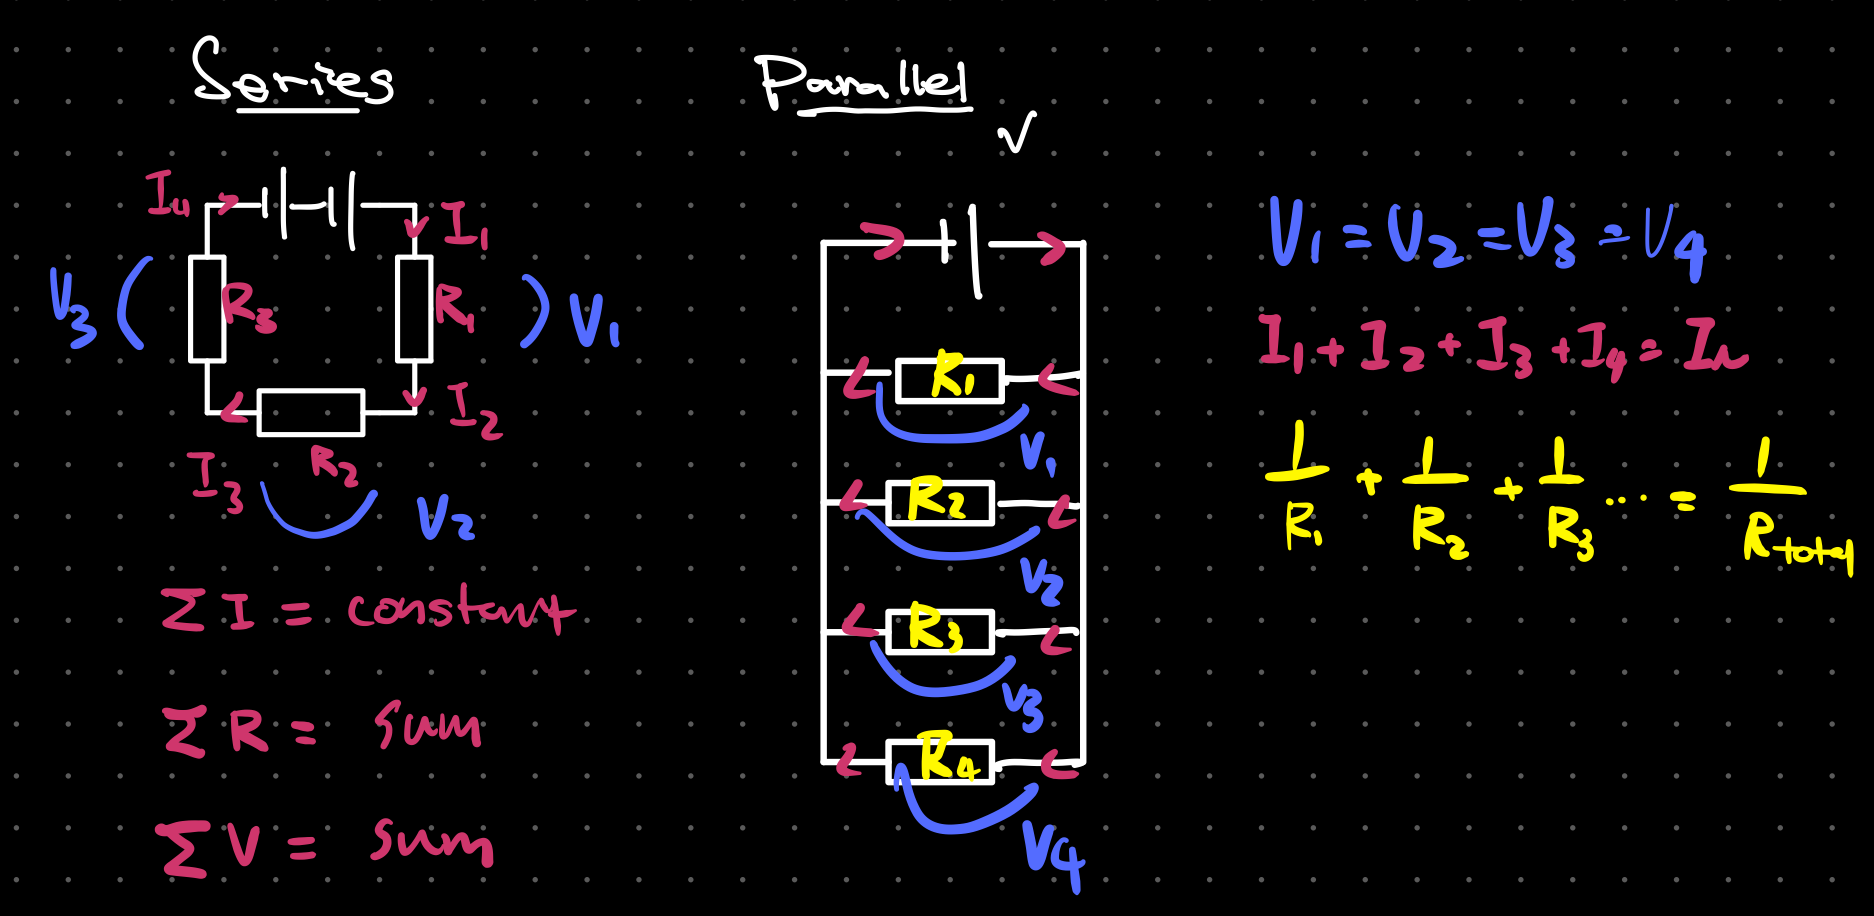 Series
I4
I1
V3
R3
R1
V1
I2
I3
R2
V2
Σ I = constant
Σ R = sum
Σ V = sum
Parallel
√
R1
V1
R2
V2
R3
V3
R4
V4
V1 = V2 = V3 = V4
I1 + I2 + I3 + I4 = In
1/R1 + 1/R2 + 1/R3 ... = 1/Rtotal